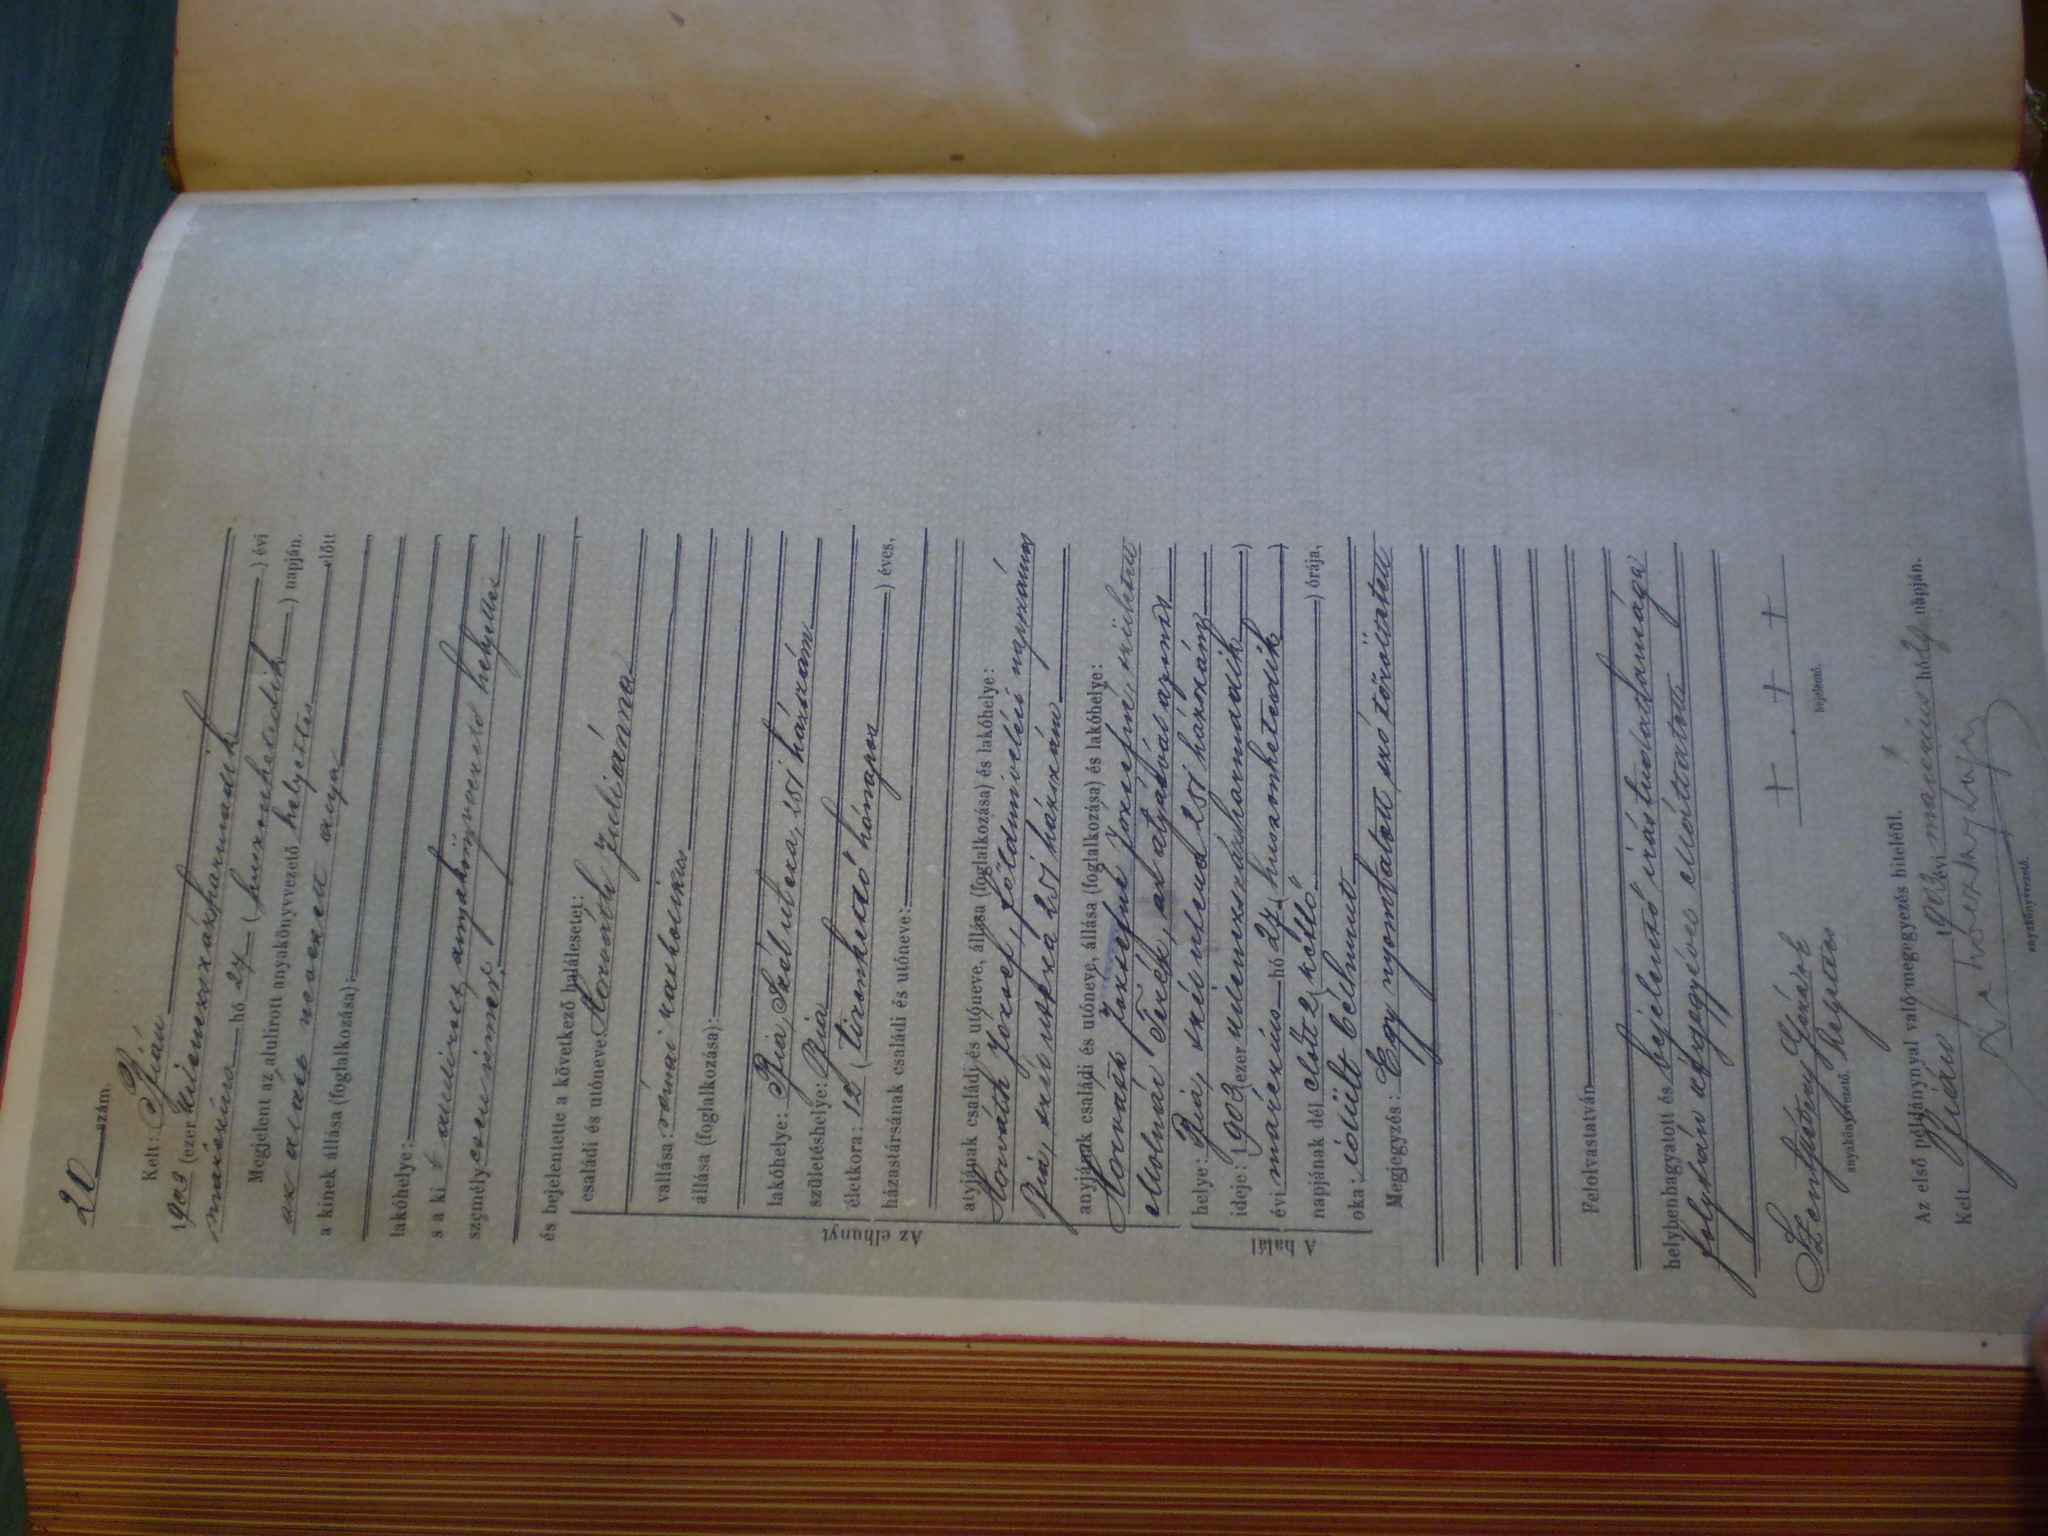 20 szám.
Kelt: Bián
1903 (ezer kilenczszázharmadik) évi
márczius hó 27 (huszonhetedik) napján.
Megjelent az alulirott anyakönyvezető helyettes előtt
az alább nevezett anya
a kinek állása (foglalkozása):
lakóhelye:
s a ki t alulirott anyakönyvvezető helyettes
személyesen ismer,
és bejelentette a következő halálesetet:
Az elhunyt
családi és utóneve Horváth Juliánna
vallása: római katholikus
állása (foglalkozása):
lakóhelye: Bia, Szél utcza, 251 házszám
születéshelye: Bia
életkora: 12 (tizenkettő hónapos) éves,
házastársának családi és utóneve:
atyjának családi és utóneve, állása (foglalkozása) és lakóhelye:
Horváth József, földmivelési napszámos
Bia, szél utcza 251 házszám
anyjának családi és utóneve, állása (foglalkozása) és lakóhelye:
Horváth Józsefné született
Molnár Teréz, az atyáéval azonos
A halál
helye: Bia, szél utcza 251 házszám
ideje: 1903 (ezer kilenczszázharmadik)
évi márczius hó 27 (huszonhetedik)
napjának dél előtt 2 (kettő) órája,
oka: idült bélhurut
Megjegyzés: Egy nyomtatott szó töröltetett
Felolvastatván
helybenhagyatott és bejelentő irástudatlansága
folytán kézjegyével elláttatott
Szentjátny
helyettes
anyakönyvvezető.
+ . + . +
bejelentő.
Az első példánynyal való megegyezés hiteléül.
Kelt Bián 1903 évi márczius hó napján.
anyakönyvvezető.